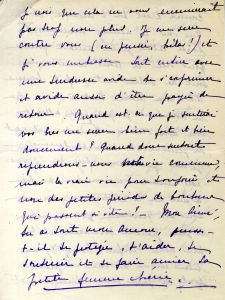 J'crois que cela ne vous ennuierait
pas trop non plus. Je me serre
contre vous (en pensée, hélas !) et
je vous embrasse. Tout entier avec
une tendresse avide de s'exprimer
et avide aussi d'être payée de
retour. Quand est-ce que je sentirai
vos bras me serrer bien fort et bien
doucement ? Quand donc
reprendrons-nous vie commune,
mais la vraie vie pour toujours et
non des petites périodes de bonheur
qui passent si vite ! Mon aimé,
se protéger, s'aider, se
soutenir et se faire aimer la
petite femme chérie.